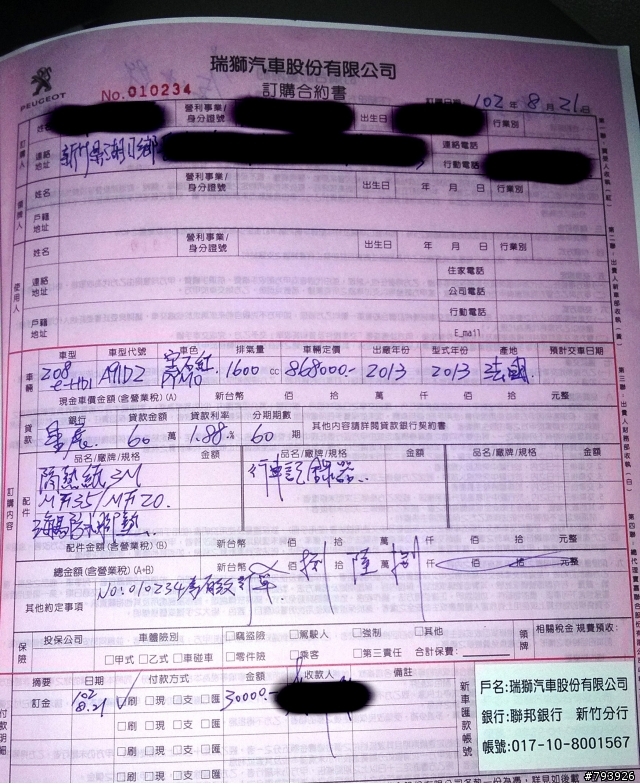 瑞獅汽車股份有限公司
PEUGEOT
No.010234 訂購合約書
訂購日期 102年8月21日
訂購人 姓名 營利事業/身分證號 出生日 行業別
連絡地址 新竹縣湖口鄉 連絡電話
行動電話
領牌人 姓名 營利事業/身分證號 出生日 年 月 日 行業別
戶籍地址
使用人 姓名 營利事業/身分證號 出生日 年 月 日 行業別
連絡地址 住家電話
公司電話
戶籍地址 行動電話
E_mail
車輛 車型 車型代號 車色 排氣量 車輛定價 出廠年份 型式年份 產地 預計交車日期
208 e-HDI A91DZ 1600cc 868000.- 2013 2013 法國
現金車價金額(含營業稅)(A) 新台幣 佰 拾 萬 仟 佰 拾 元整
貸款 銀行 貸款金額 貸款利率 分期期數 其他內容請詳閱貸款銀行契約書
星展 60萬 1.88.% 60期
訂購內容
配件 品名/廠牌/規格 金額 品名/廠牌/規格 金額
隔熱紙 3M 行車記錄器
M35/M20.
配件金額(含營業稅)(B) 新台幣 佰 拾 萬 仟 佰 拾 元整
總金額(含營業稅)(A+B) 新台幣 佰 捌 拾 陸 萬 捌 仟 佰 拾 元整
其他約定事項 No:010234為有效訂單
保險 投保公司 車體險別 □竊盜險 □駕駛人 □強制 □其他 領牌 相關稅金 規費預收:
□甲式 □乙式 □車碰車 □零件險 □乘客 □第三責任 合計保費:
付款明細 摘要 日期 付款方式 金額 收款人 備註
訂金 102 8.21 ✓刷 □現 □支 □匯 30000.-
□刷 □現 □支 □匯
□刷 □現 □支 □匯
□刷 □現 □支 □匯
新車匯款帳號
戶名:瑞獅汽車股份有限公司
銀行:聯邦銀行 新竹分行
帳號:017-10-8001567
#793926